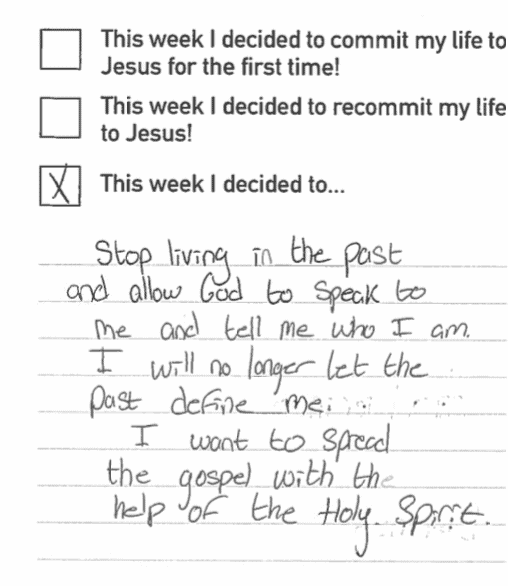 This week I decided to commit my life to
Jesus for the first time!
This week I decided to recommit my life
to Jesus!
X This week I decided to...
Stop living in the past
and allow God to speak to
me and tell me who I am.
I will no longer let the
past define me.
I want to spread
the gospel with the
help of the Holy Spirit.